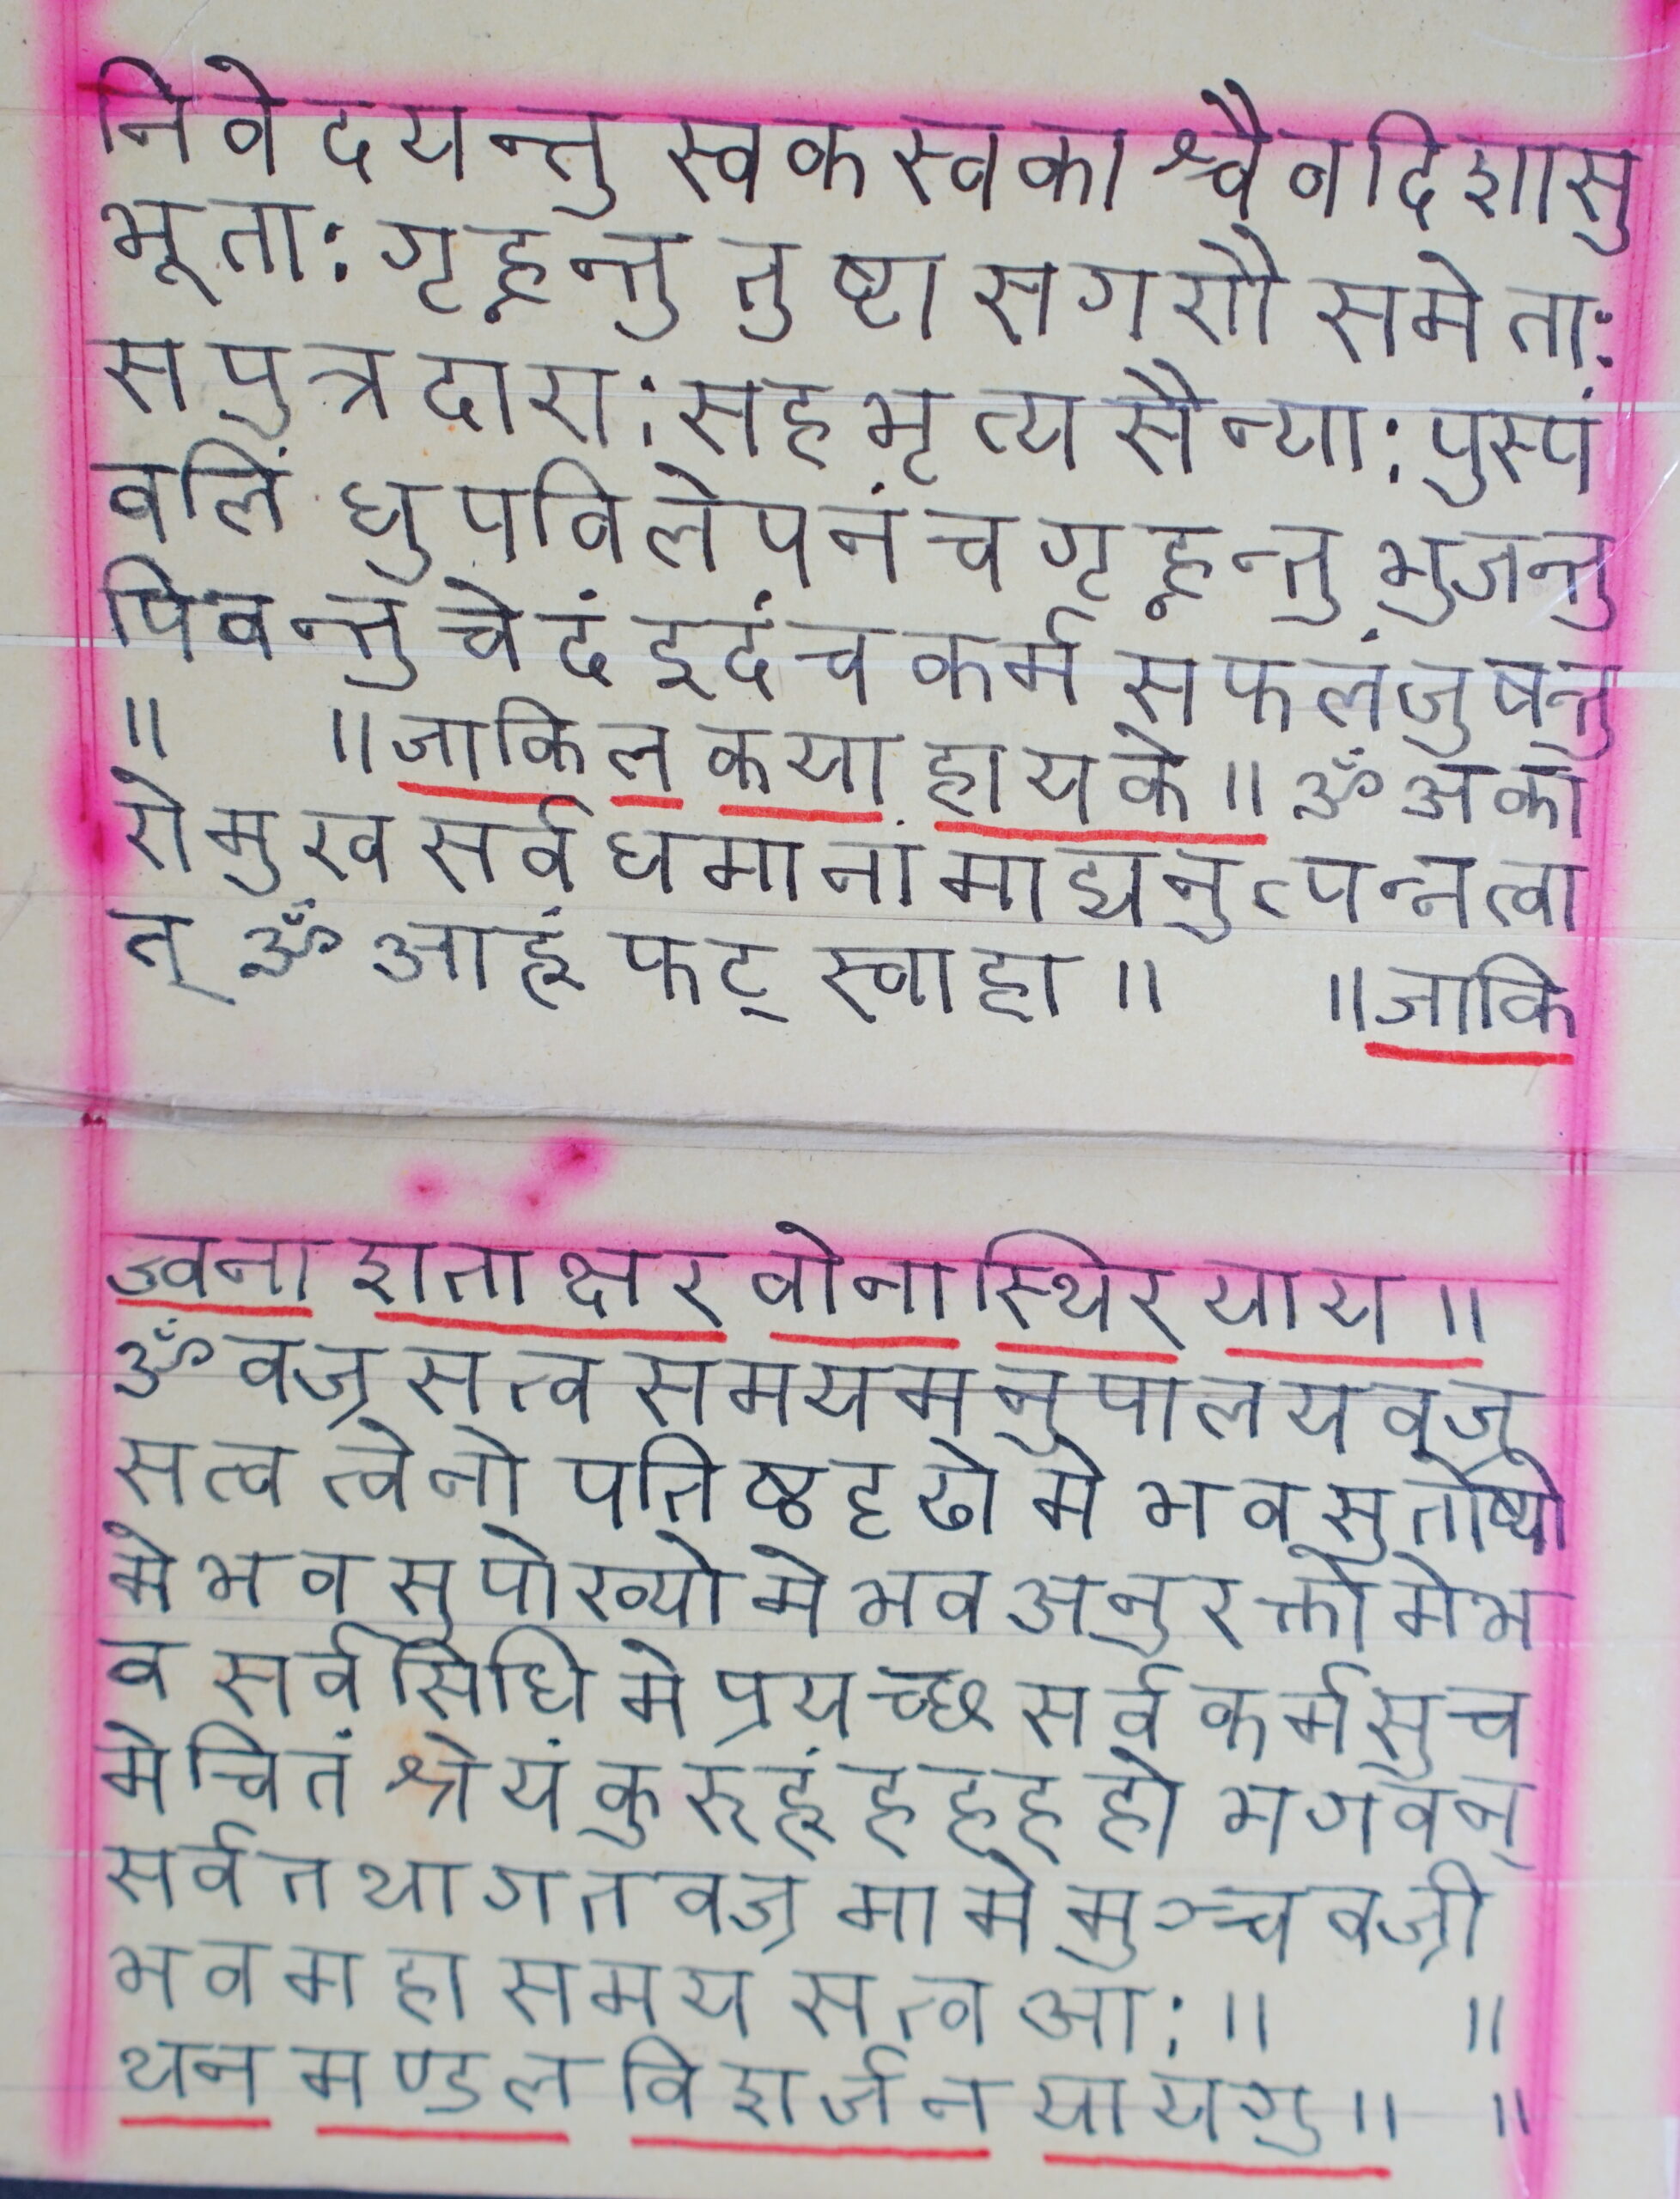 निवेदयन्तु स्वकस्वकाश्चैवदिशासु
भूताः गृह्नन्तु तुष्टा सगणै समेताः
सपुत्रदाराः सहभृत्यसैन्याः पुस्पं
वलिं धुपविलेपनंचगृह्नन्तु भुजन्तु
पिवन्तु चेदं इदंच कर्म सफलंजुषन्तु
॥ ॥जाकिल कया हायके॥ ॐ अका
रोमुख सर्वधमानांमाद्यनुत्पन्नत्वा
त् ॐ आहूं फट् स्वाहा॥ ॥जाकि
ज्वना शताक्षर वोना स्थिर याय॥
ॐ वज्रसत्व समयमनुपालय वज्र
सत्व त्वेनो पतिष्ठदृढो मे भव सुतोष्यो
मे भव सुपोख्यो मे भव अनुरक्तो मे भ
व सर्वसिधि मे प्रयच्छ सर्व कर्मसुच
मे चितं श्रेयं कुरुहूं हहहहो भगवन्
सर्व तथागत वज्र मा मे मुञ्च वज्री
भव महा समय सत्व आः॥ ॥
थन मण्डल विशर्जन यायगु॥ ॥